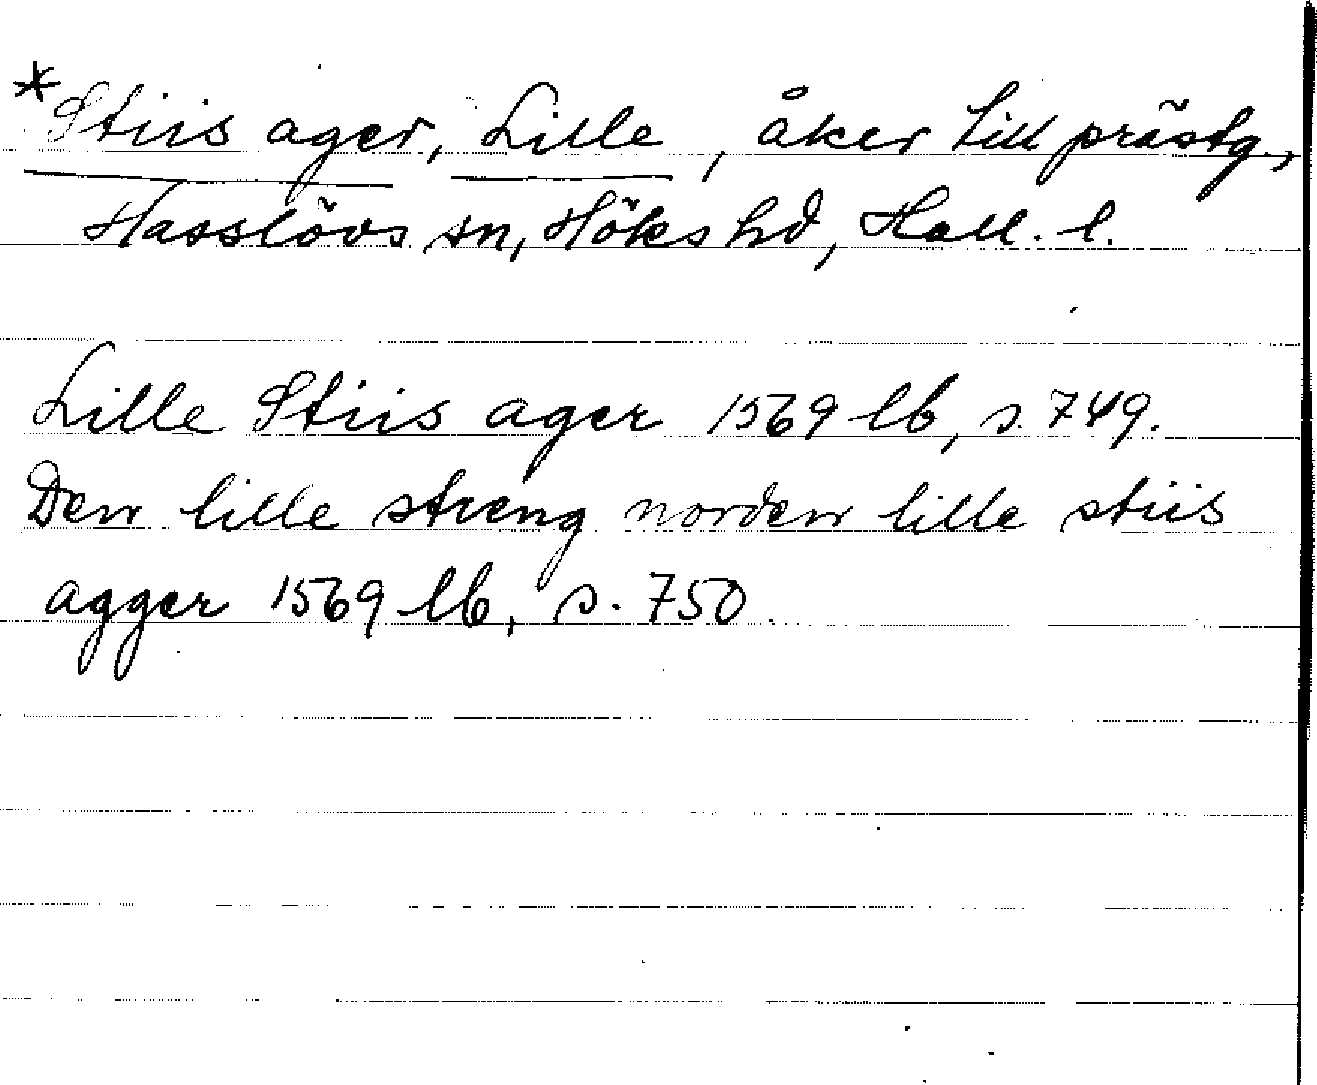 *Stiis ager, Lille, åker till prästg.,
Hasslövs sn, Höks hd, Hall. l.
Lille Stiis ager 1569 lb, s. 749.
Den lille streng norden lille stiis
agger 1569 lb, s. 750.